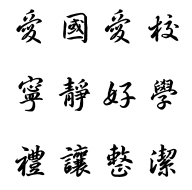 愛國愛校
寧靜好學
禮讓整潔